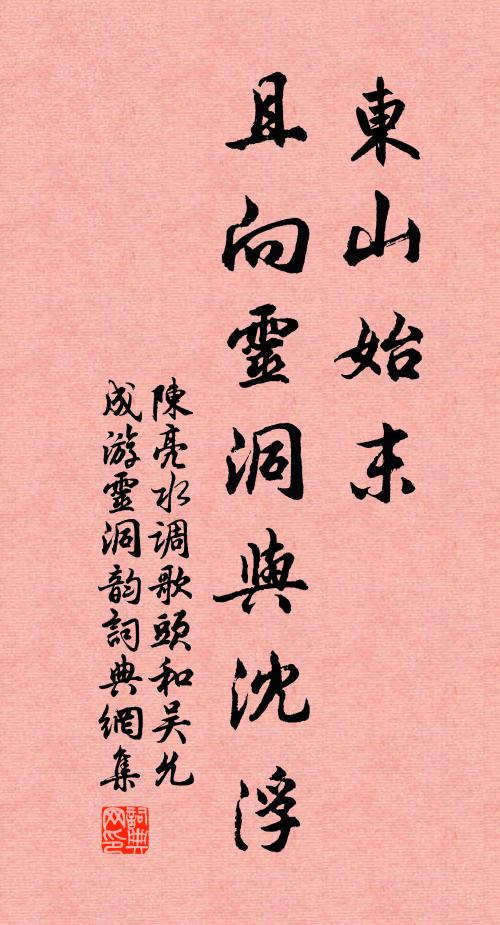 東山始末
且向靈洞與沈浮
陳亮水调歌頭和吴允
成游靈洞韵詞典網集
詞典网印